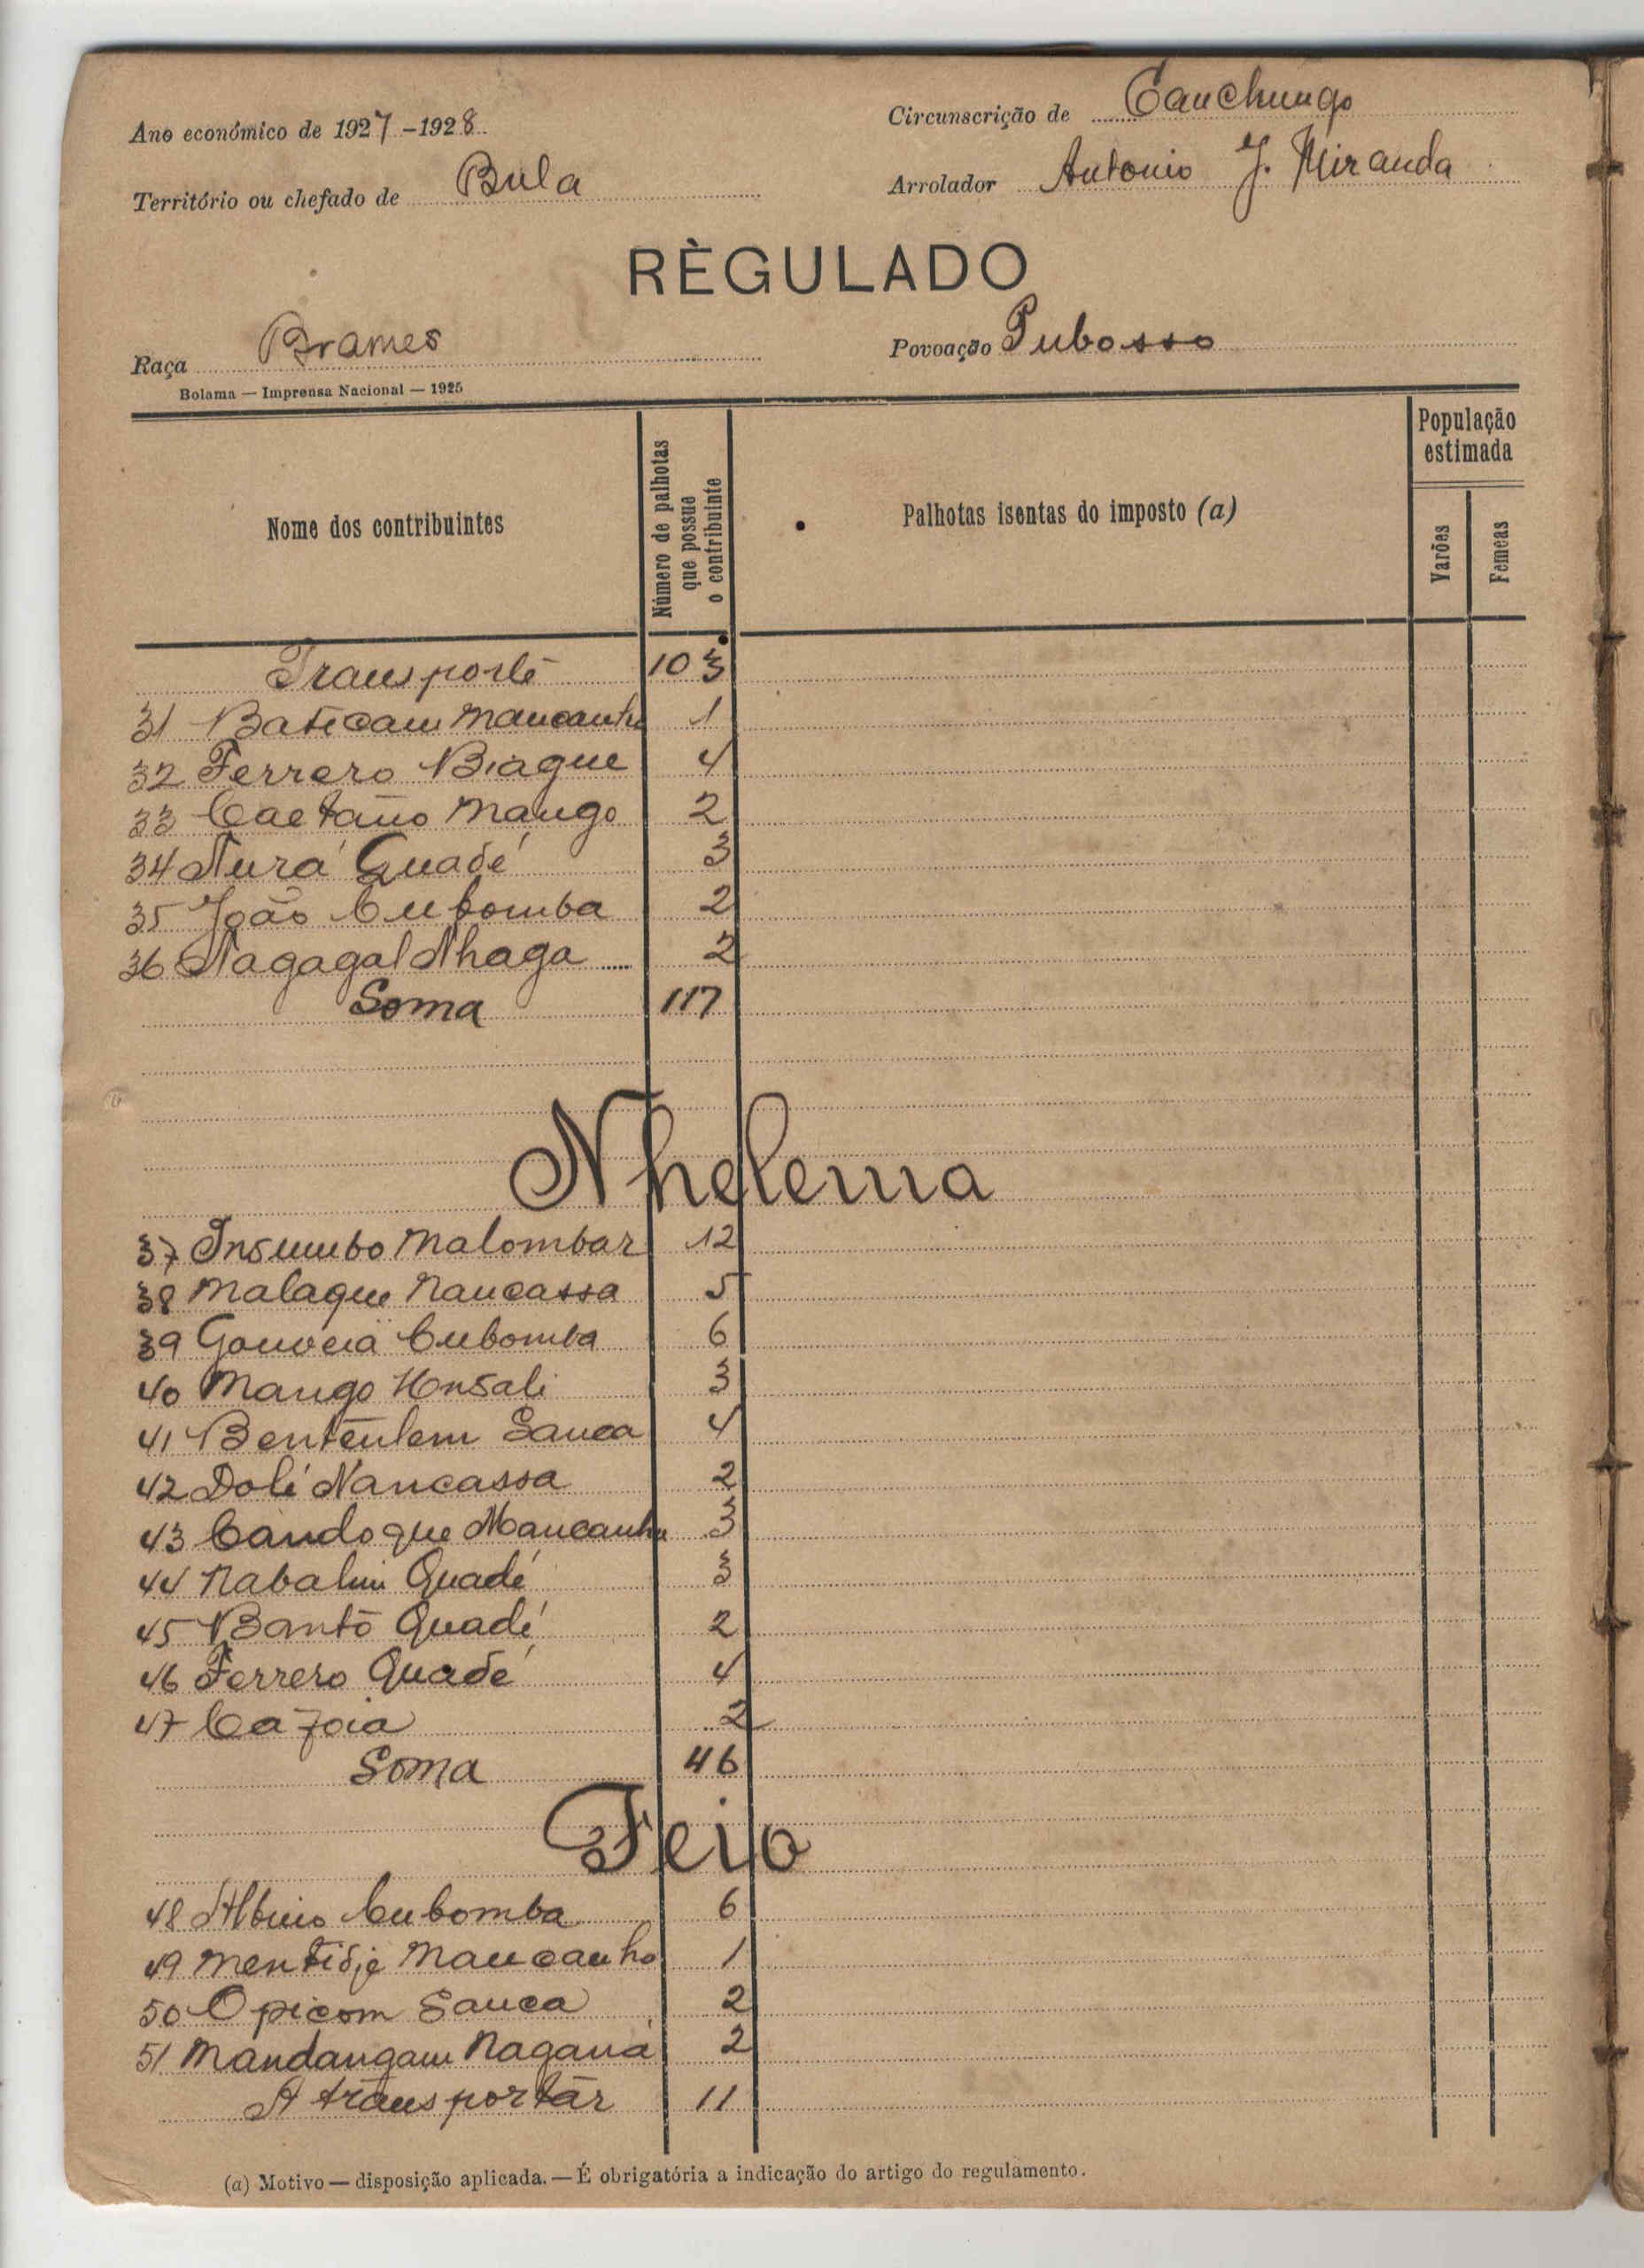 Ano económico de 1927-1928
Circunscrição de Canchungo
Território ou chefado de Bula
Arrolador Antonio J. Miranda
RÈGULADO
Raça Brames
Povoação Pubosso
Bolama — Imprensa Nacional — 1925
Nome dos contribuintes
Número de palhotas que possue o contribuinte
Palhotas isentas do imposto (a)
População estimada
Varões
Femeas
Transporte 103
31 Baticam Mancanha 1
32 Ferrero Biague 4
33 Caetano Mango 2
34 Nurá Quadé 3
35 João Cubomba 2
36 Nagagal Nhaga 2
Soma 117
Nhelema
37 Insumbo Malombar 12
38 Malaque Nancassa 5
39 Gouveia Cubomba 6
40 Mango Honsali 3
41 Bentenlem Sanca 4
42 Dolé Nancassa 2
43 Candoque Mancanha 3
44 Nabalim Quadé 3
45 Bantõ Quadé 2
46 Ferrero Quadé 4
47 Cajoia 2
Soma 46
Feio
48 Albino Cubomba 6
49 Mentidje Mancanha 1
50 Opicom Sanca 2
51 Mandangam Naganá 2
A transportar 11
(a) Motivo — disposição aplicada. — É obrigatória a indicação do artigo do regulamento.